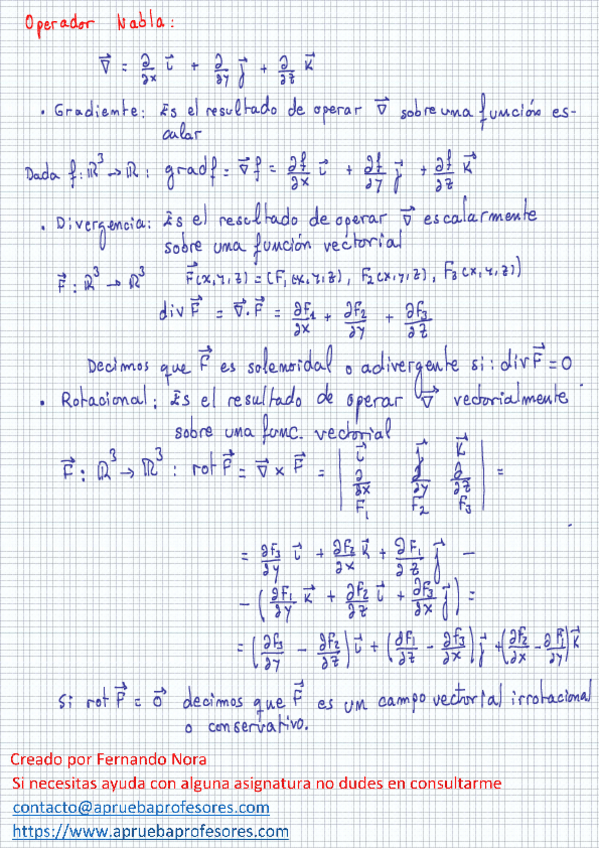 Operador Nabla:
∇⃗ = ∂/∂x i⃗ + ∂/∂y j⃗ + ∂/∂z k⃗
· Gradiente: Es el resultado de operar ∇⃗ sobre una función es-
calar
Dada f: ℝ³ → ℝ : grad f = ∇⃗f = ∂f/∂x i⃗ + ∂f/∂y j⃗ + ∂f/∂z k⃗
· Divergencia: Es el resultado de operar ∇⃗ escalarmente
sobre una función vectorial
F⃗ : ℝ³ → ℝ³ F⃗(x,y,z) = (F₁(x,y,z), F₂(x,y,z), F₃(x,y,z))
div F⃗ = ∇⃗·F⃗ = ∂F₁/∂x + ∂F₂/∂y + ∂F₃/∂z
Decimos que F⃗ es solenoidal o adivergente si: div F⃗ = 0
· Rotacional: Es el resultado de operar ∇⃗ vectorialmente
sobre una func. vectorial
F⃗ : ℝ³ → ℝ³ : rot F⃗ = ∇⃗ x F⃗ = | i⃗ j⃗ k⃗ |
| ∂/∂x ∂/∂y ∂/∂z | =
| F₁ F₂ F₃ |
= ∂F₃/∂y i⃗ + ∂F₂/∂x k⃗ + ∂F₁/∂z j⃗ –
– (∂F₁/∂y k⃗ + ∂F₂/∂z i⃗ + ∂F₃/∂x j⃗) =
= (∂F₃/∂y – ∂F₂/∂z) i⃗ + (∂F₁/∂z – ∂F₃/∂x) j⃗ + (∂F₂/∂x – ∂F₁/∂y) k⃗
Si rot F⃗ = 0⃗ decimos que F⃗ es un campo vectorial irrotacional
o conservativo.
Creado por Fernando Nora
Si necesitas ayuda con alguna asignatura no dudes en consultarme
contacto@apruebaprofesores.com
https://www.apruebaprofesores.com